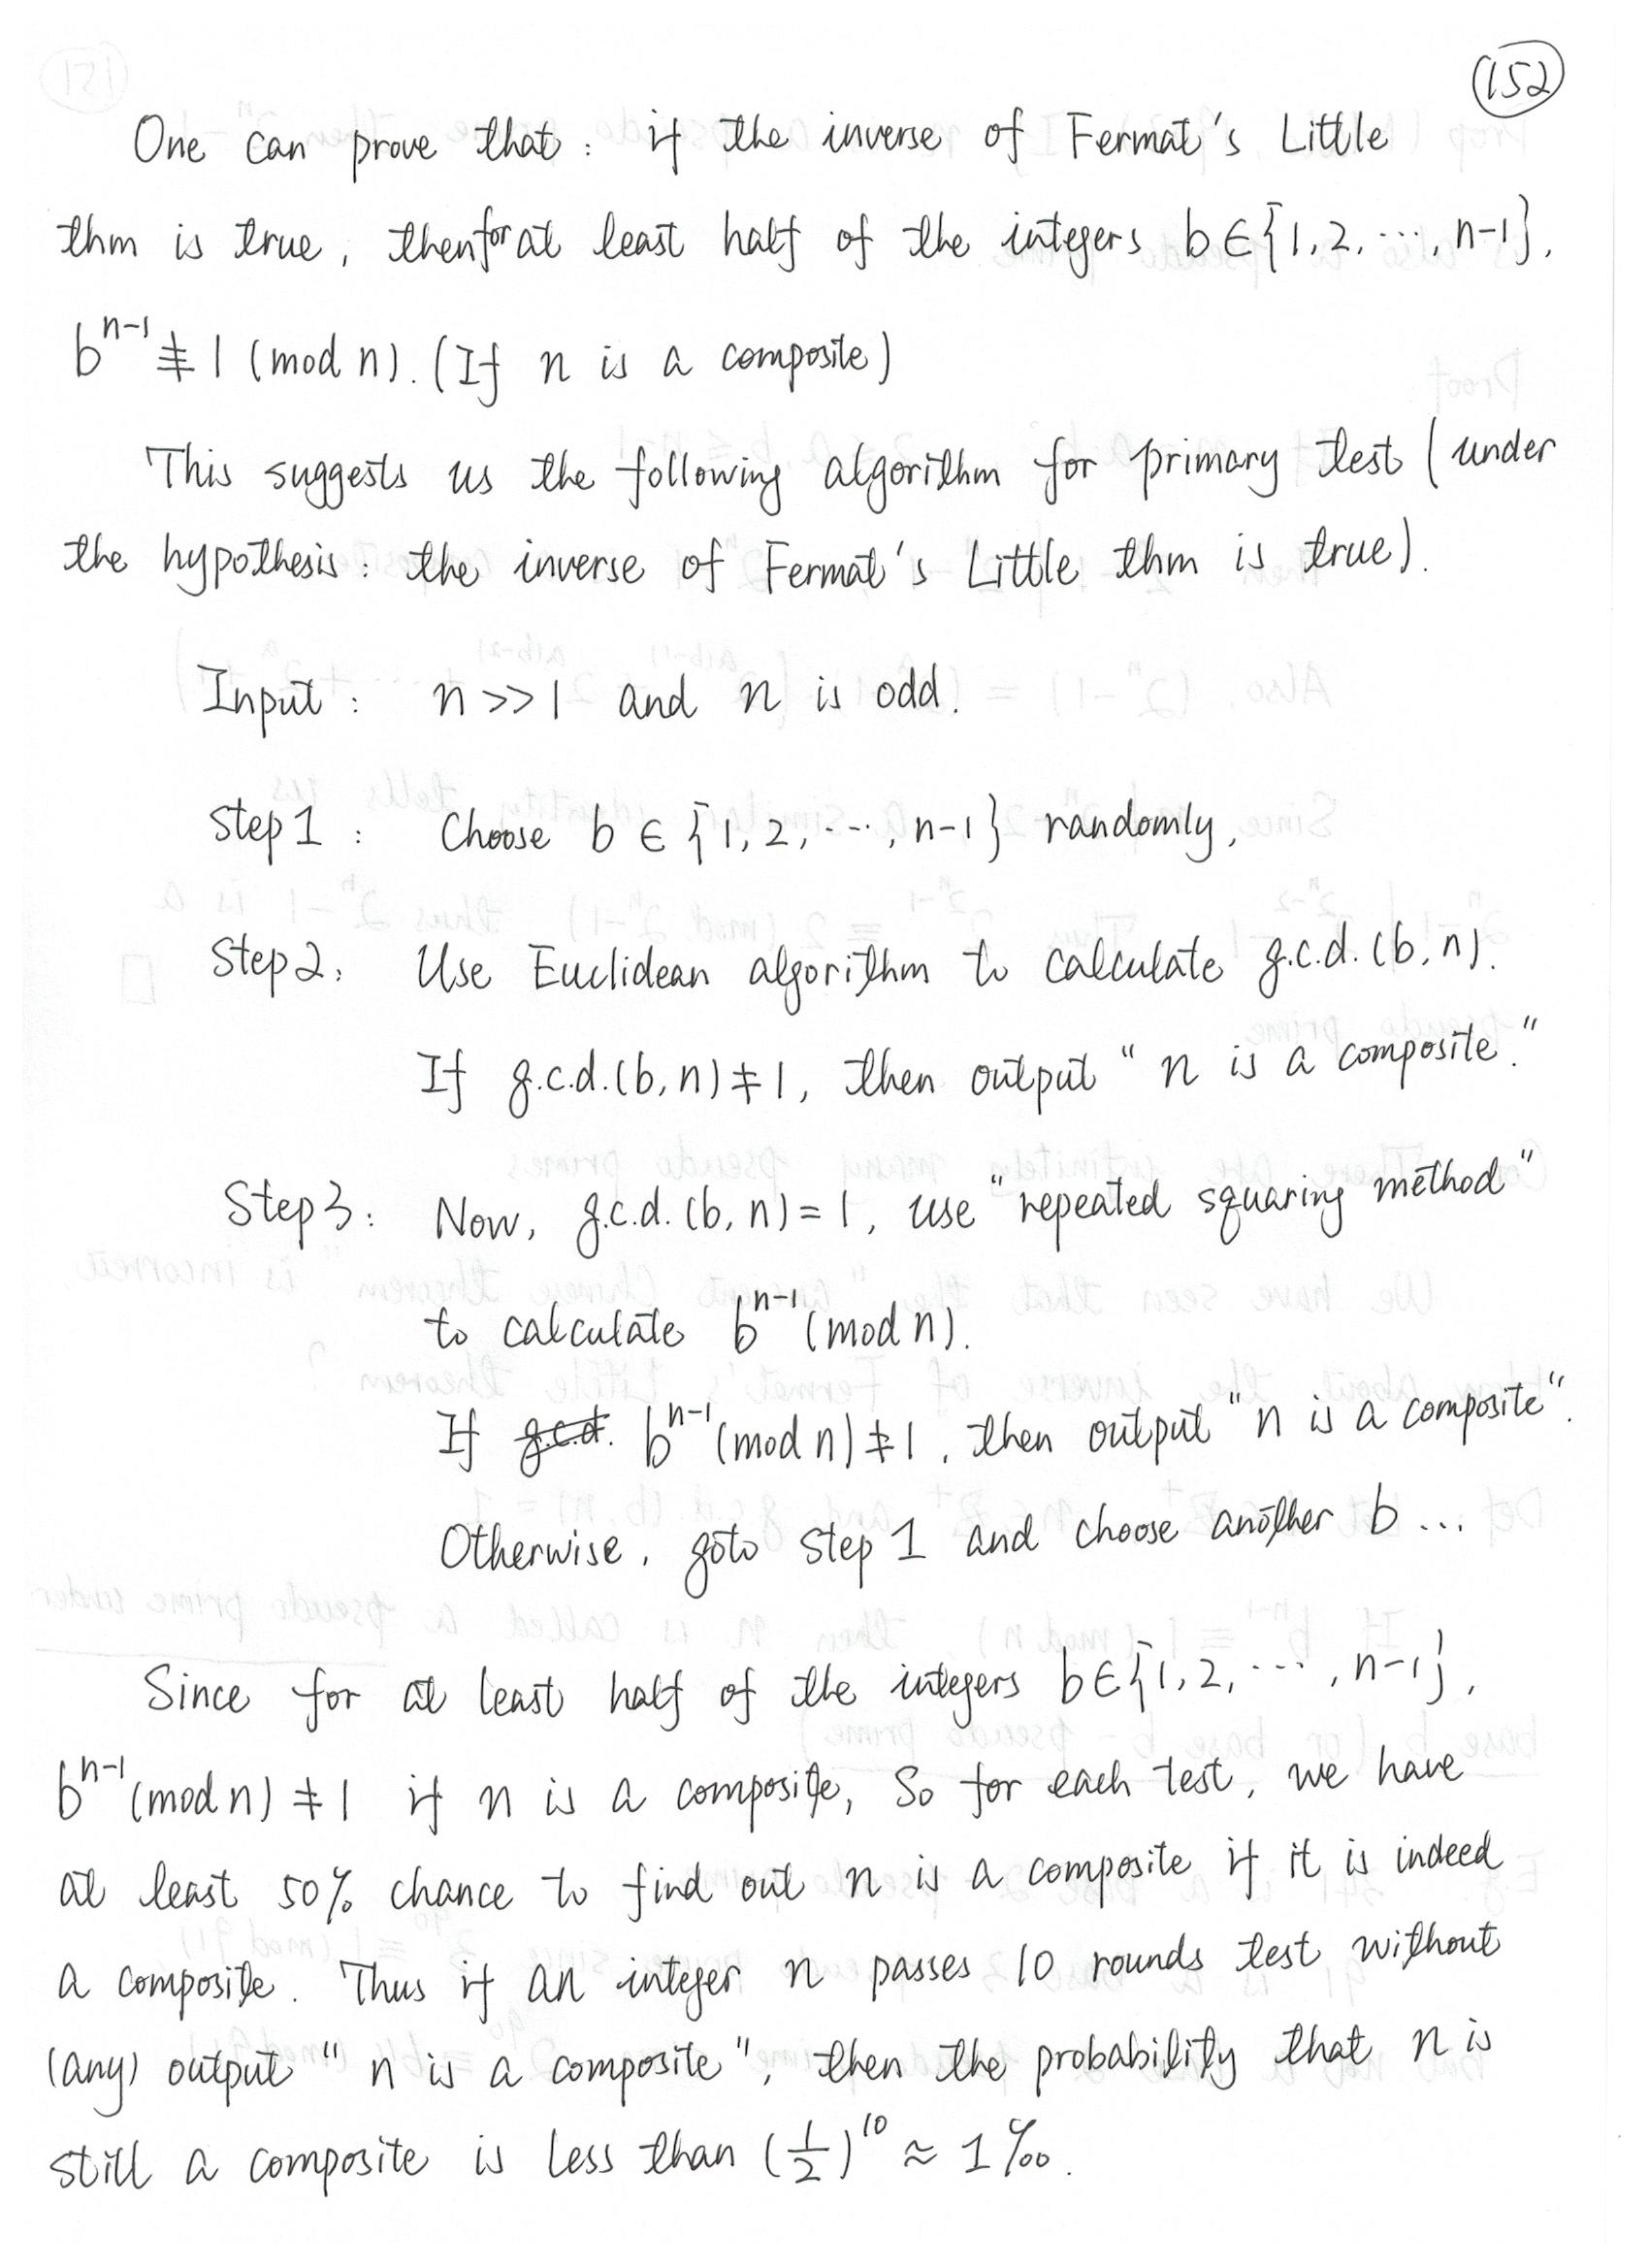 152
One can prove that : if the inverse of Fermat's Little
thm is true, then for at least half of the integers b ∈ {1, 2, ⋯, n-1},
b^{n-1} ≢ 1 (mod n). (If n is a composite)
This suggests us the following algorithm for primary test (under
the hypothesis : the inverse of Fermat's Little thm is true).
Input : n >> 1 and n is odd.
Step 1 : Choose b ∈ {1, 2, ⋯, n-1} randomly,
Step 2 : Use Euclidean algorithm to calculate g.c.d. (b, n).
If g.c.d. (b, n) ≠ 1, then output " n is a composite."
Step 3 : Now, g.c.d. (b, n) = 1, use "repeated squaring method"
to calculate b^{n-1} (mod n).
If g.c.d. b^{n-1} (mod n) ≢ 1, then output "n is a composite".
Otherwise, goto Step 1 and choose another b ...
Since for at least half of the integers b ∈ {1, 2, ⋯, n-1},
b^{n-1} (mod n) ≠ 1 if n is a composite, So for each test, we have
at least 50% chance to find out n is a composite if it is indeed
a composite. Thus if an integer n passes 10 rounds test without
(any) output " n is a composite", then the probability that n is
still a composite is less than (1/2)^{10} ≈ 1‰.